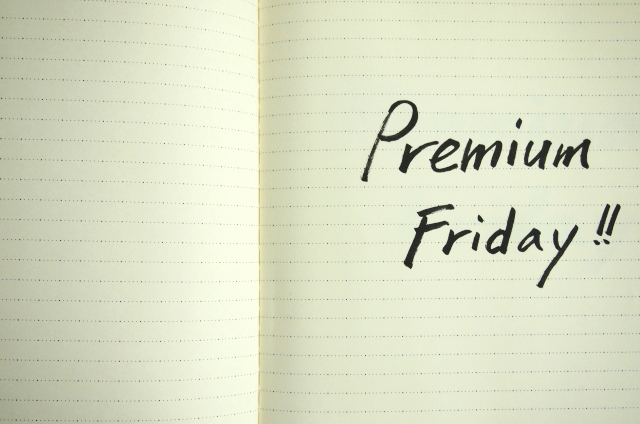 Premium
Friday!!